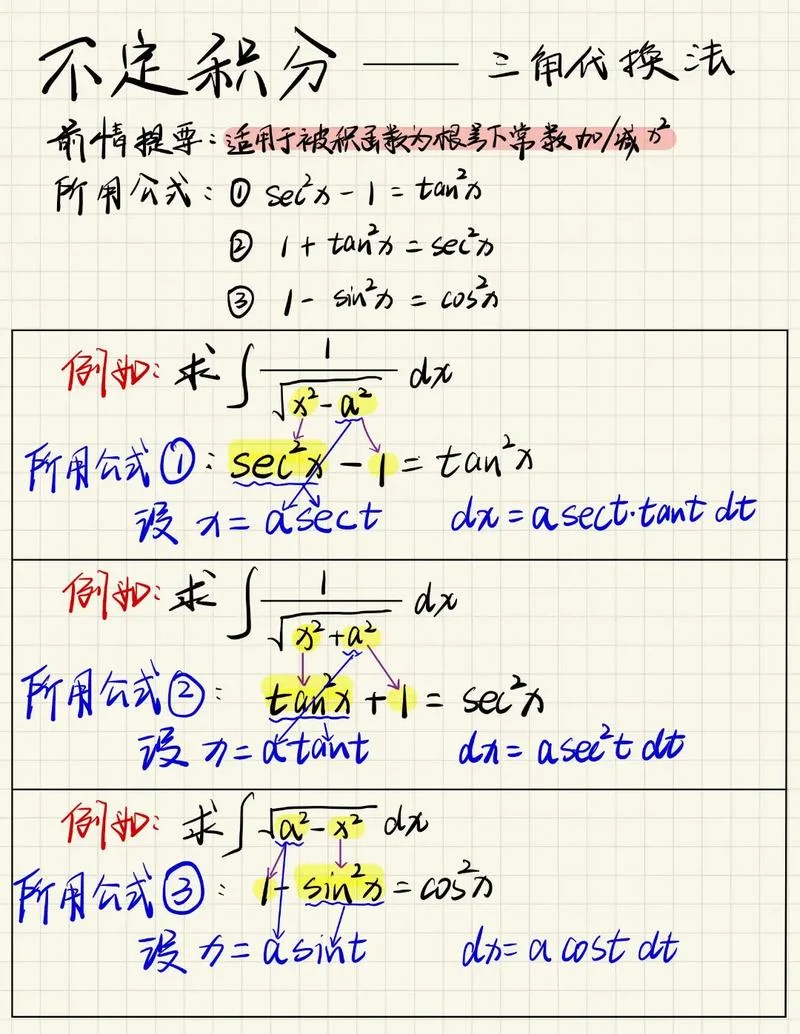 不定积分 —— 三角代换法
前情提要：适用于被积函数为根号下常数加/减x²
所用公式：① sec²x - 1 = tan²x
② 1 + tan²x = sec²x
③ 1 - sin²x = cos²x
例如：求 ∫ 1/√(x² - a²) dx
所用公式①：sec²x - 1 = tan²x
设 x = asect dx = asect·tant dt
例如：求 ∫ 1/√(x² + a²) dx
所用公式②：tan²x + 1 = sec²x
设 x = atant dx = asec²t dt
例如：求 ∫ √(a² - x²) dx
所用公式③：1 - sin²x = cos²x
设 x = asint dx = a cost dt